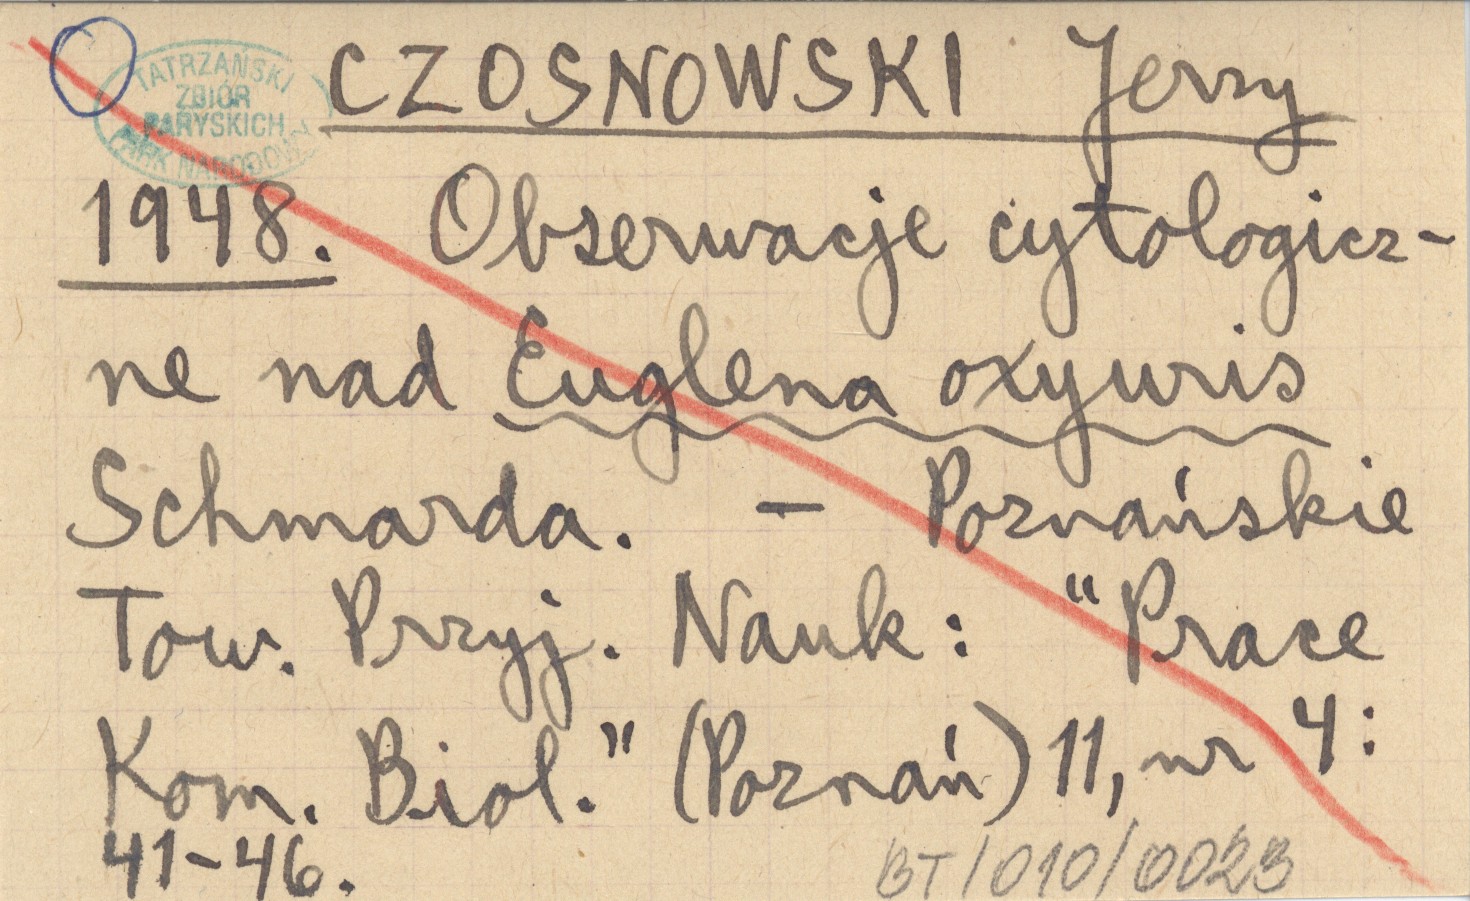 TATRZAŃSKI
ZBIÓR
PARYSKICH
PARK NARODOWY
CZOSNOWSKI Jerzy
1948. Obserwacje cytologicz-
ne nad Euglena oxyuris
Schmarda. - Poznańskie
Tow. Przyj. Nauk: "Prace
Kom. Biol." (Poznań) 11, nr 4:
41-46.
BT/010/0023